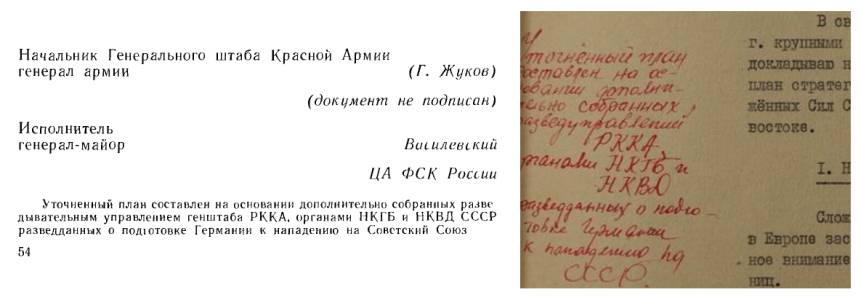 Начальник Генерального штаба Красной Армии
генерал армии (Г. Жуков)
(документ не подписан)
Исполнитель
генерал-майор Василевский
ЦА ФСК России
Уточненный план составлен на основании дополнительно собранных разве
дывательным управлением генштаба РККА, органами НКГБ и НКВД СССР
разведданных о подготовке Германии к нападению на Советский Союз
54
Уточнённый план
составлен на ос-
новании дополни-
тельно собранных
разведуправлений
РККА
органами НКГБ и
НКВД
разведданных о подго-
товке Германии
к нападению на
СССР.
В св
г. крупными
докладываю н
план стратег
жённых Сил С
востоке.
I. Н
Слож
в Европе зас
ное внимание
ниц.